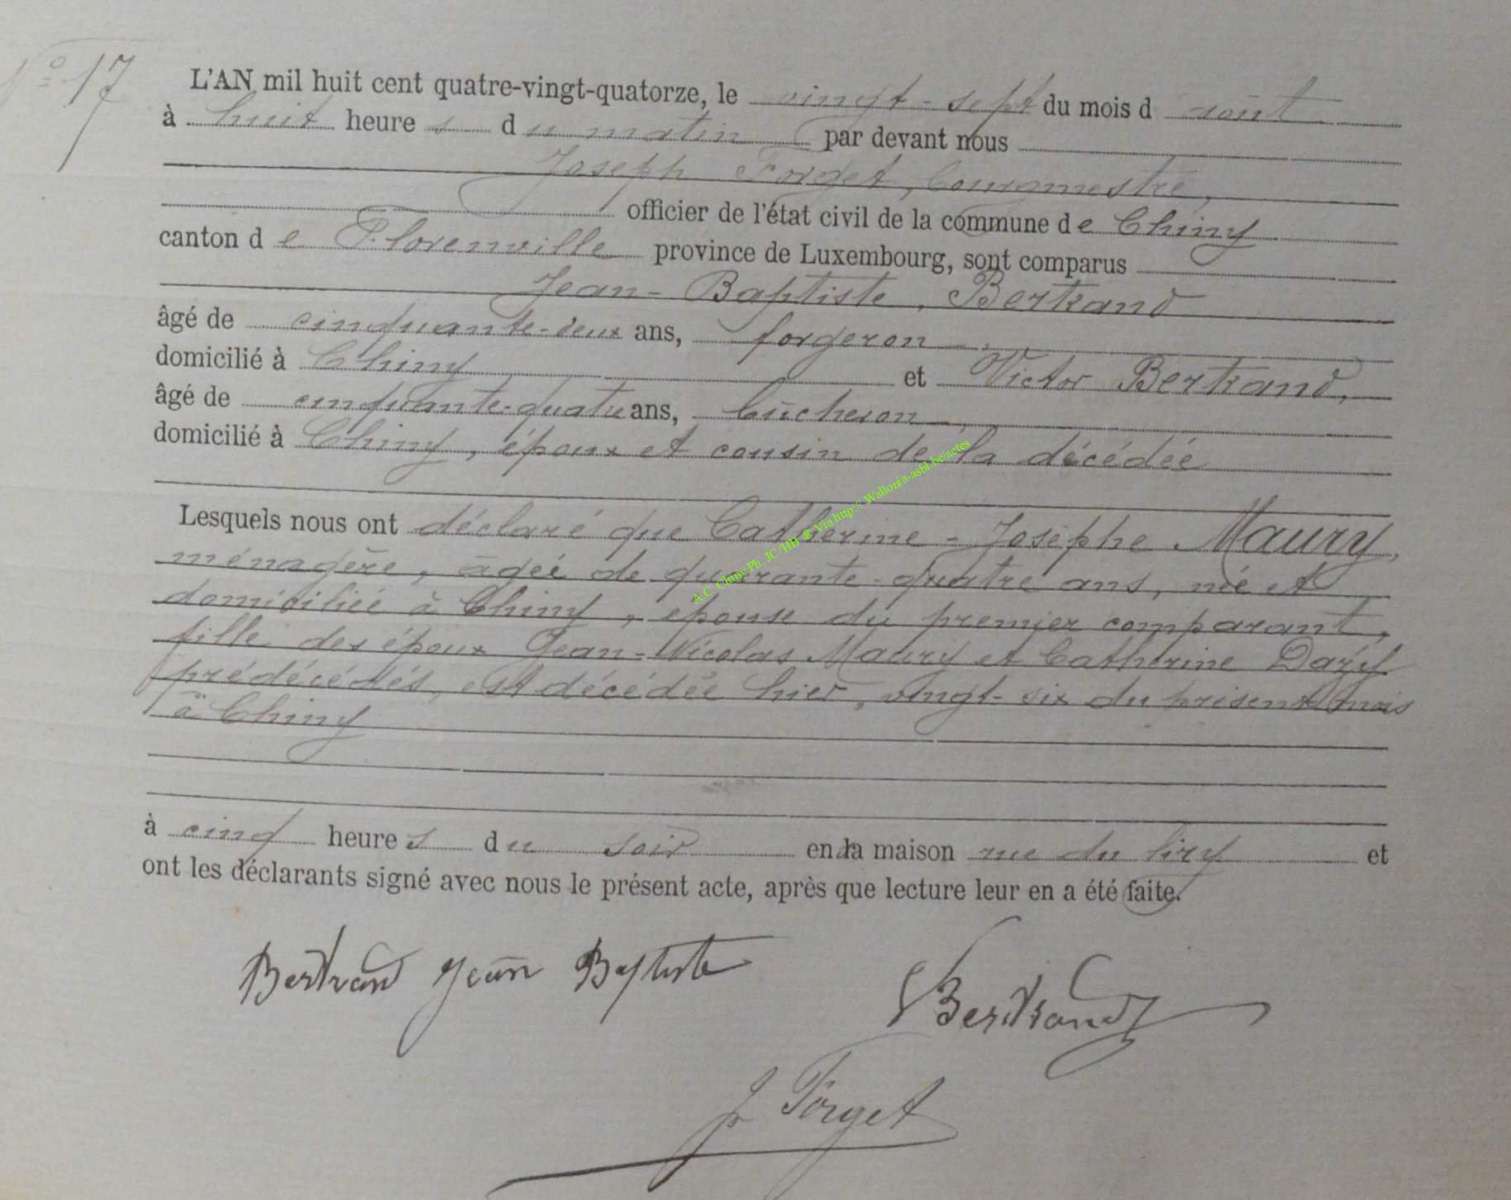 N° 17
L'AN mil huit cent quatre-vingt-quatorze, le vingt-sept du mois d août
à huit heure s d u matin par devant nous
Joseph Forget, bourgmestre,
officier de l'état civil de la commune d e Chiny
canton d e Florenville province de Luxembourg, sont comparus
Jean-Baptiste Bertrand
âgé de cinquante-deux ans, forgeron,
domicilié à Chiny et Victor Bertrand,
âgé de cinquante-quatre ans, bûcheron,
domicilié à Chiny, époux et cousin de la décédée
Lesquels nous ont déclaré que Catherine-Josèphe Maury,
ménagère, âgée de quarante-quatre ans, née et
domiciliée à Chiny, épouse du premier comparant,
fille des époux Jean-Nicolas Maury et Catherine
prédécédés, est décédée hier, vingt-six du présent mois
à Chiny
à cinq heure s d u soir en sa maison rue du et
ont les déclarants signé avec nous le présent acte, après que lecture leur en a été faite.
Bertrand Jean Baptiste
V Bertrand
J Forget